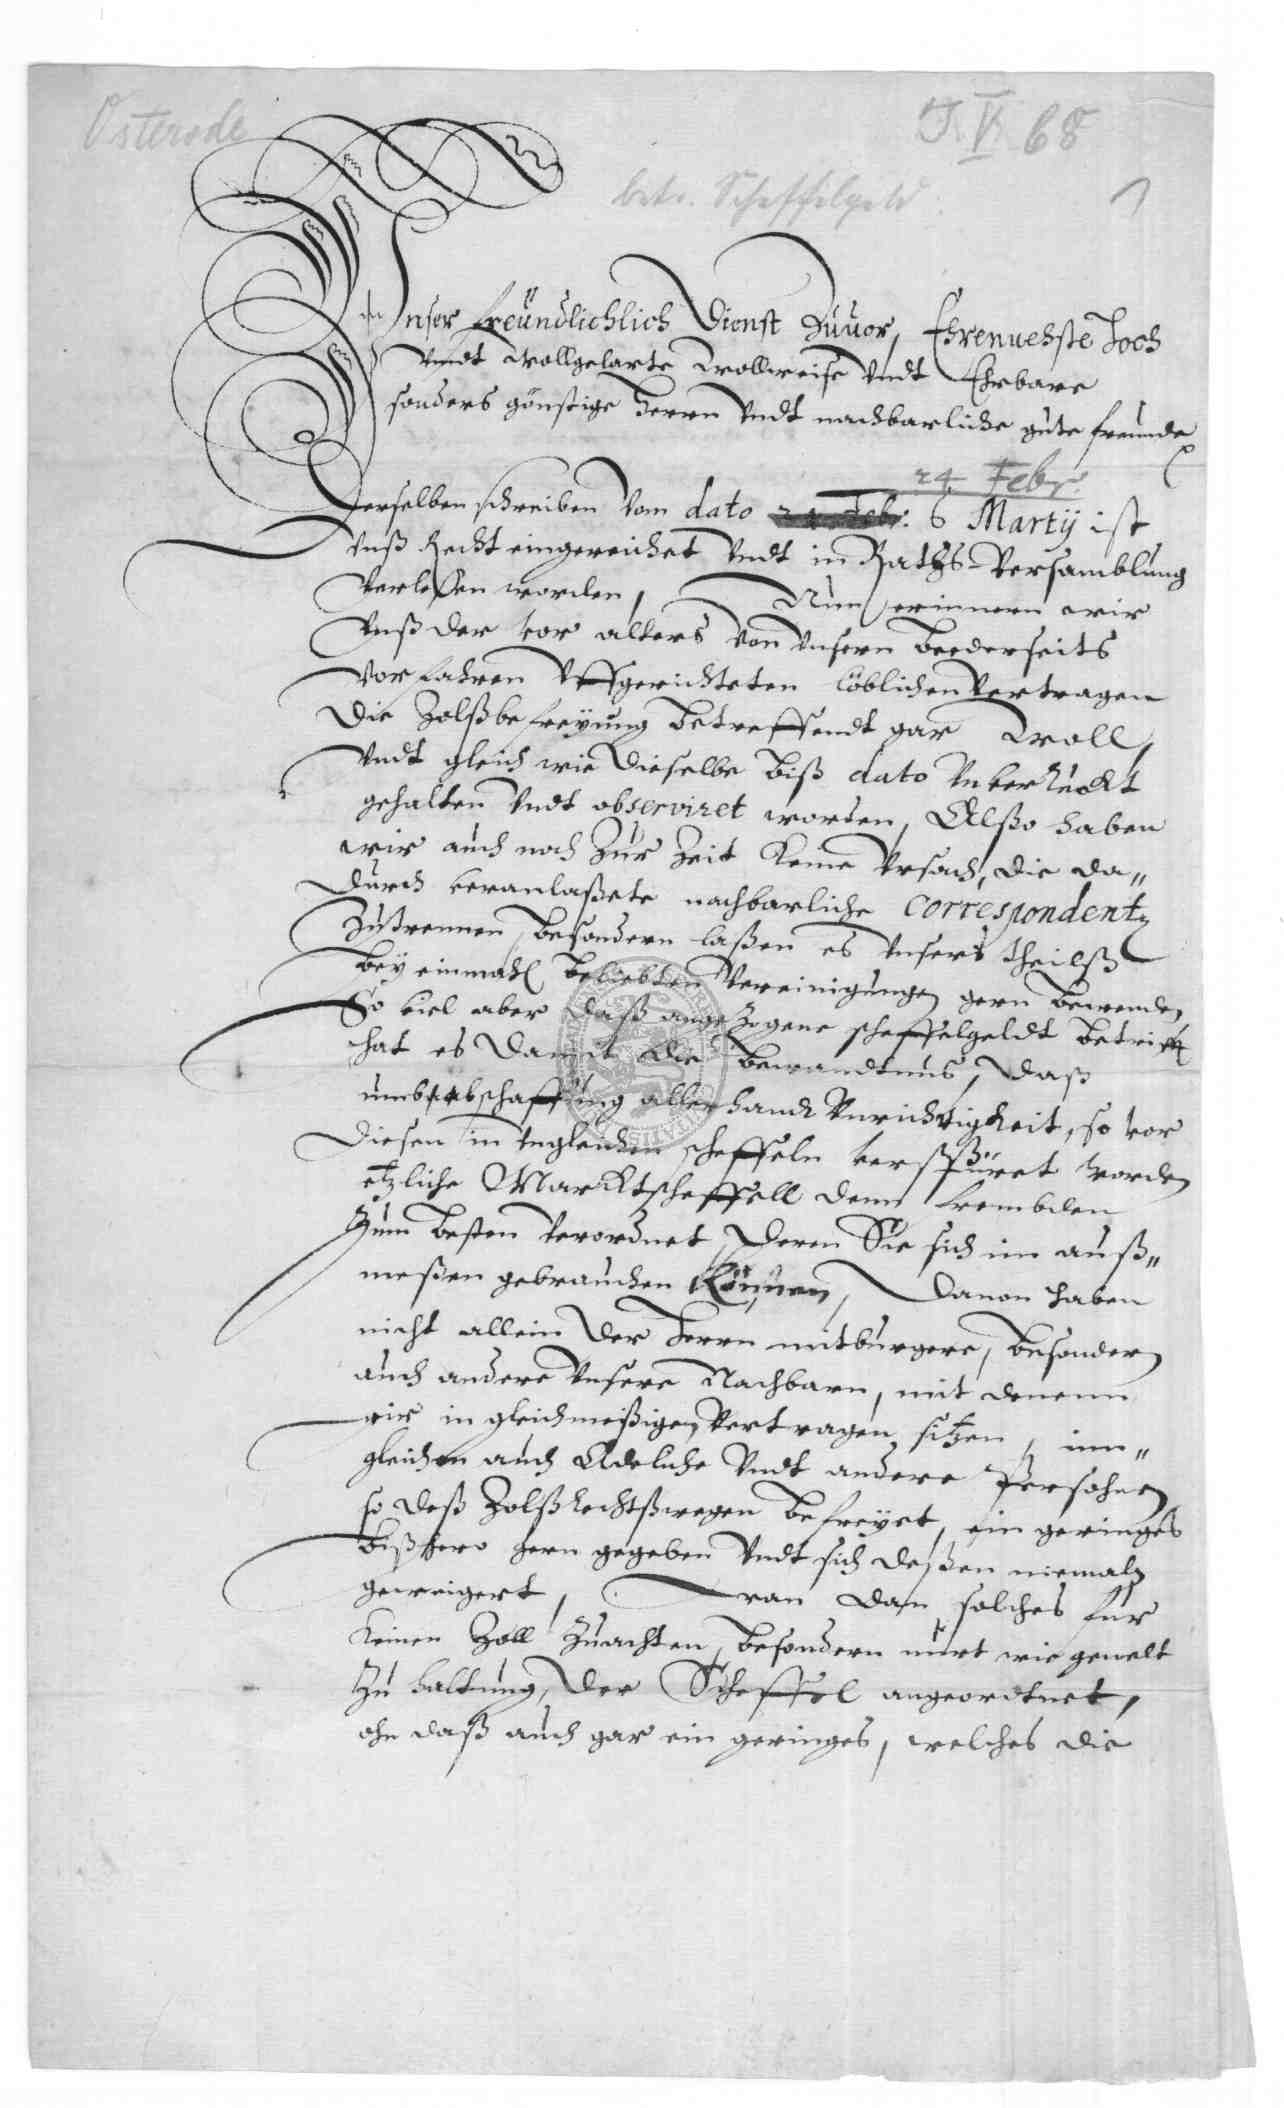 Osterode
J. V. 68
betr. Scheffelgeld.
1
Unser freündtlichlich Dienst Zuuor, Ehrenuehste Hoch
Vndt Wollgelarte Wollweise Vndt Ehrbare
sonders gönstige Herrn Vndt nachbarliche gute freunde
24 Febr.
Derselben schreiben Vom dato 24 Febr: 6 Martÿ ist
Vnß Recht eingereichet Vndt in Raths-Versamblung
Verlesen worden, Nun erinnern wir
Vnß der vor alters von Vnsern beederseits
Vorfahren Vffgerichteten löblichen Vertragen
die Zolßbefreÿung betreffendt gar Woll,
Vndt gleich wie dieselbe biß dato Vnverruckt
gehalten Vndt observiret worden, Alßo haben
wir auch noch Zur Zeit keine Vrsach, die da„
durch veranlaßete nachbarliche Correspondentz
Zutrennen, besondern laßen es Vnsers theilß
beÿ einmahl beliebten Vereinigungen gern bewenden,
So viel aber daß angezogene scheffelgeldt betrifft
hat es damit die bewandtnus, daß
umb abschaffung allerhandt Vnrichtigkeit, so vor
diesen in Vngleichen scheffeln verspüret worden
etzliche Marcktscheffell denn frembden
Zum besten Verordnet, deren Sie sich im auß„
meßen gebrauchen können, Dauon haben
nicht allein der Herrn mitbürgere, besondern
auch andere Vnsere Nachbarn, mit denenn
wir in gleichmeßigen Vertragen sitzen, inn„
gleichen auch Adeliche Vndt andere Persohnen
so deß Zolß Rechtßwegen befreÿet, ein geringes
bißhero gern gegeben Vndt sich deßen niemalß
geweigert, wan dan solches für
keinen Zoll Zuachten, besondern nurt wie gemelt
Zu haltung der Scheffel angeordtnet,
ohn daß auch gar ein geringes, welches die